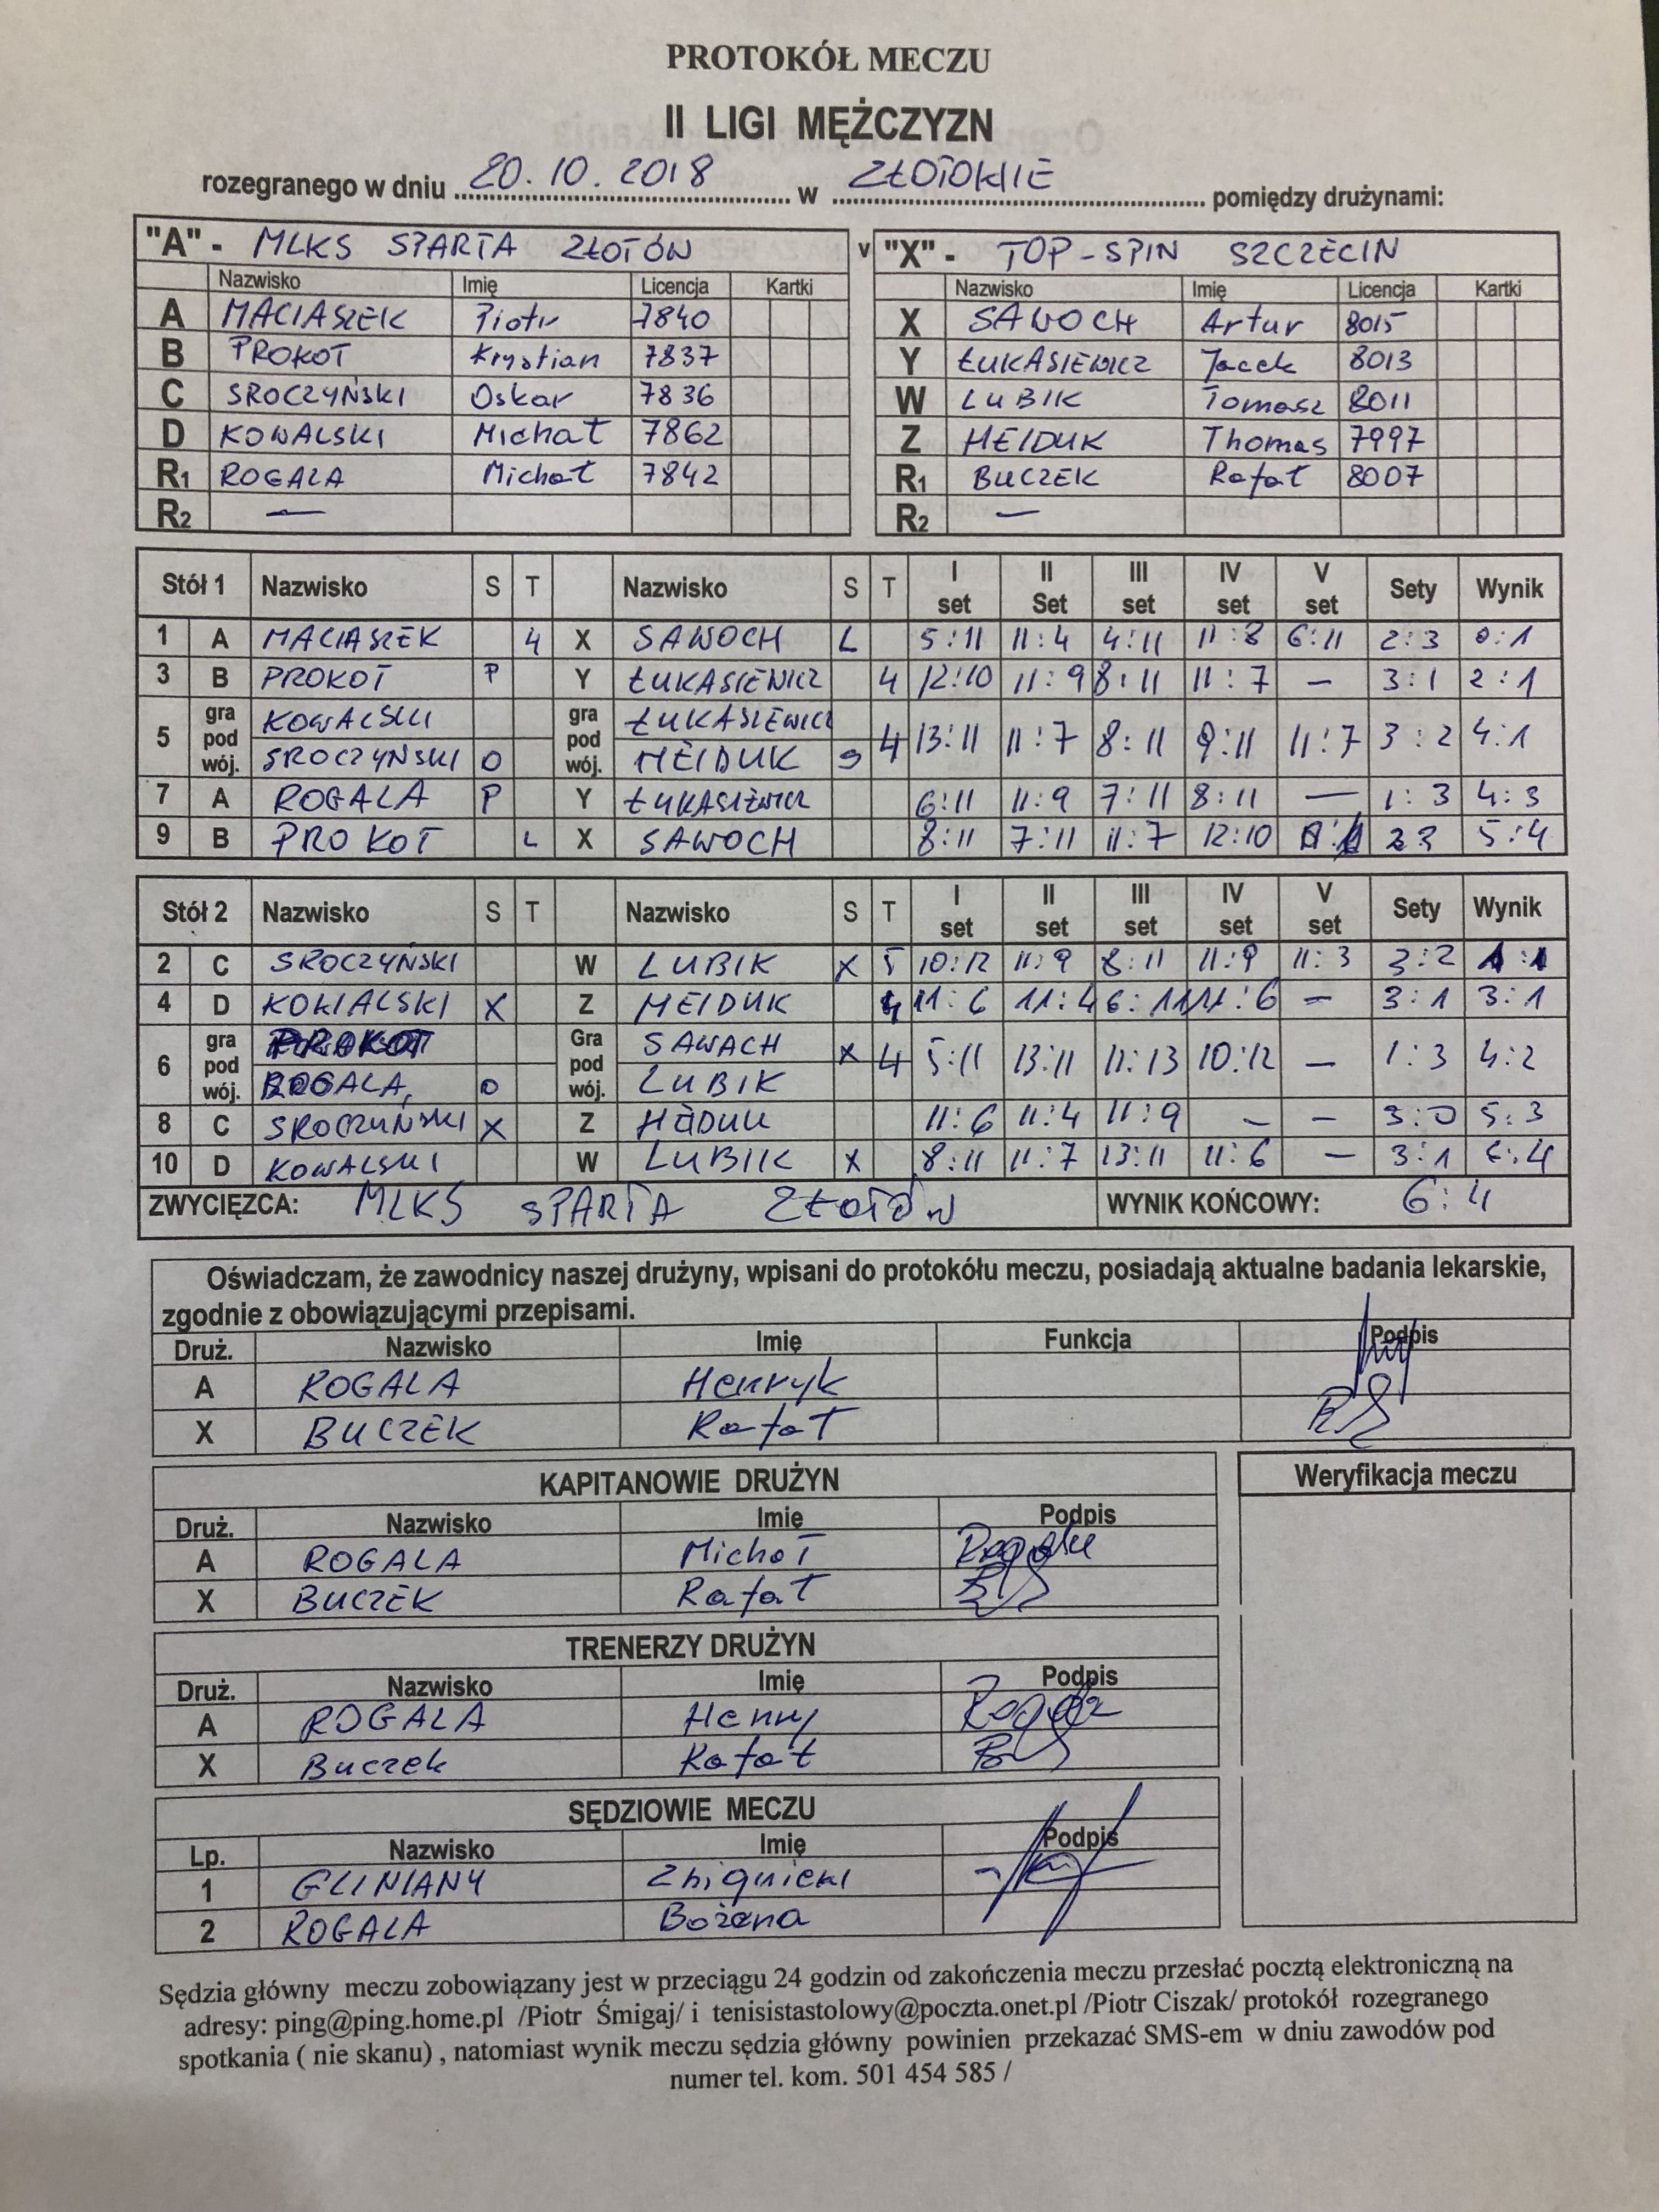 PROTOKÓŁ MECZU
II LIGI MĘŻCZYZN
rozegranego w dniu 20.10.2018 w ZŁOTOWIE pomiędzy drużynami:
"A" - MLKS SPARTA ZŁOTÓW v "X" - TOP-SPIN SZCZECIN
Nazwisko Imię Licencja Kartki Nazwisko Imię Licencja Kartki
A MACIASZEK Piotr 7840 X SAWOCH Artur 8015
B PROKOT Krystian 7837 Y ŁUKASIEWICZ Jacek 8013
C SROCZYŃSKI Oskar 7836 W LUBIK Tomasz 8011
D KOWALSKI Michał 7862 Z HEIDUK Thomas 7997
R1 ROGALA Michał 7842 R1 BUCZEK Rafał 8007
R2 — R2 —
Stół 1 Nazwisko S T Nazwisko S T I set II Set III set IV set V set Sety Wynik
1 A MACIASZEK 4 X SAWOCH L 5:11 11:4 4:11 11:8 6:11 2:3 0:1
3 B PROKOT P Y ŁUKASIEWICZ 4 12:10 11:9 8:11 11:7 — 3:1 2:1
5 gra pod wój. KOWALSKI SROCZYŃSKI O gra pod wój. ŁUKASIEWICZ HEIDUK S 4 13:11 11:7 8:11 9:11 11:7 3:2 4:1
7 A ROGALA P Y ŁUKASIEWICZ 6:11 11:9 7:11 8:11 — 1:3 4:3
9 B PROKOT L X SAWOCH 8:11 7:11 11:7 12:10 5:4
Stół 2 Nazwisko S T Nazwisko S T I set II set III set IV set V set Sety Wynik
2 C SROCZYŃSKI W LUBIK X 5 10:12 11:9 8:11 11:9 11:3 3:2 1:1
4 D KOWALSKI X Z HEIDUK 4 11:6 11:4 6:11 11:6 — 3:1 3:1
6 gra pod wój. PROKOT ROGALA, O Gra pod wój. SAWACH LUBIK X 4 5:11 13:11 11:13 10:12 — 1:3 4:2
8 C SROCZYŃSKI X Z 11:6 11:4 11:9 — — 3:0 5:3
10 D KOWALSKI W LUBIK X 8:11 11:7 13:11 11:6 — 3:1 6:4
ZWYCIĘZCA: MLKS SPARTA ZŁOTÓW WYNIK KOŃCOWY: 6:4
Oświadczam, że zawodnicy naszej drużyny, wpisani do protokółu meczu, posiadają aktualne badania lekarskie,
zgodnie z obowiązującymi przepisami.
Druż. Nazwisko Imię Funkcja Podpis
A ROGALA Henryk
X BUCZEK Rafał
KAPITANOWIE DRUŻYN Weryfikacja meczu
Druż. Nazwisko Imię Podpis
A ROGALA Michał Rogala
X BUCZEK Rafał
TRENERZY DRUŻYN
Druż. Nazwisko Imię Podpis
A ROGALA Henry Rogala
X Buczek Rafał
SĘDZIOWIE MECZU
Lp. Nazwisko Imię Podpis
1 GLINIANY Zbigniew
2 ROGALA Bożena
Sędzia główny meczu zobowiązany jest w przeciągu 24 godzin od zakończenia meczu przesłać pocztą elektroniczną na
adresy: ping@ping.home.pl /Piotr Śmigaj/ i tenisistastolowy@poczta.onet.pl /Piotr Ciszak/ protokół rozegranego
spotkania ( nie skanu) , natomiast wynik meczu sędzia główny powinien przekazać SMS-em w dniu zawodów pod
numer tel. kom. 501 454 585 /